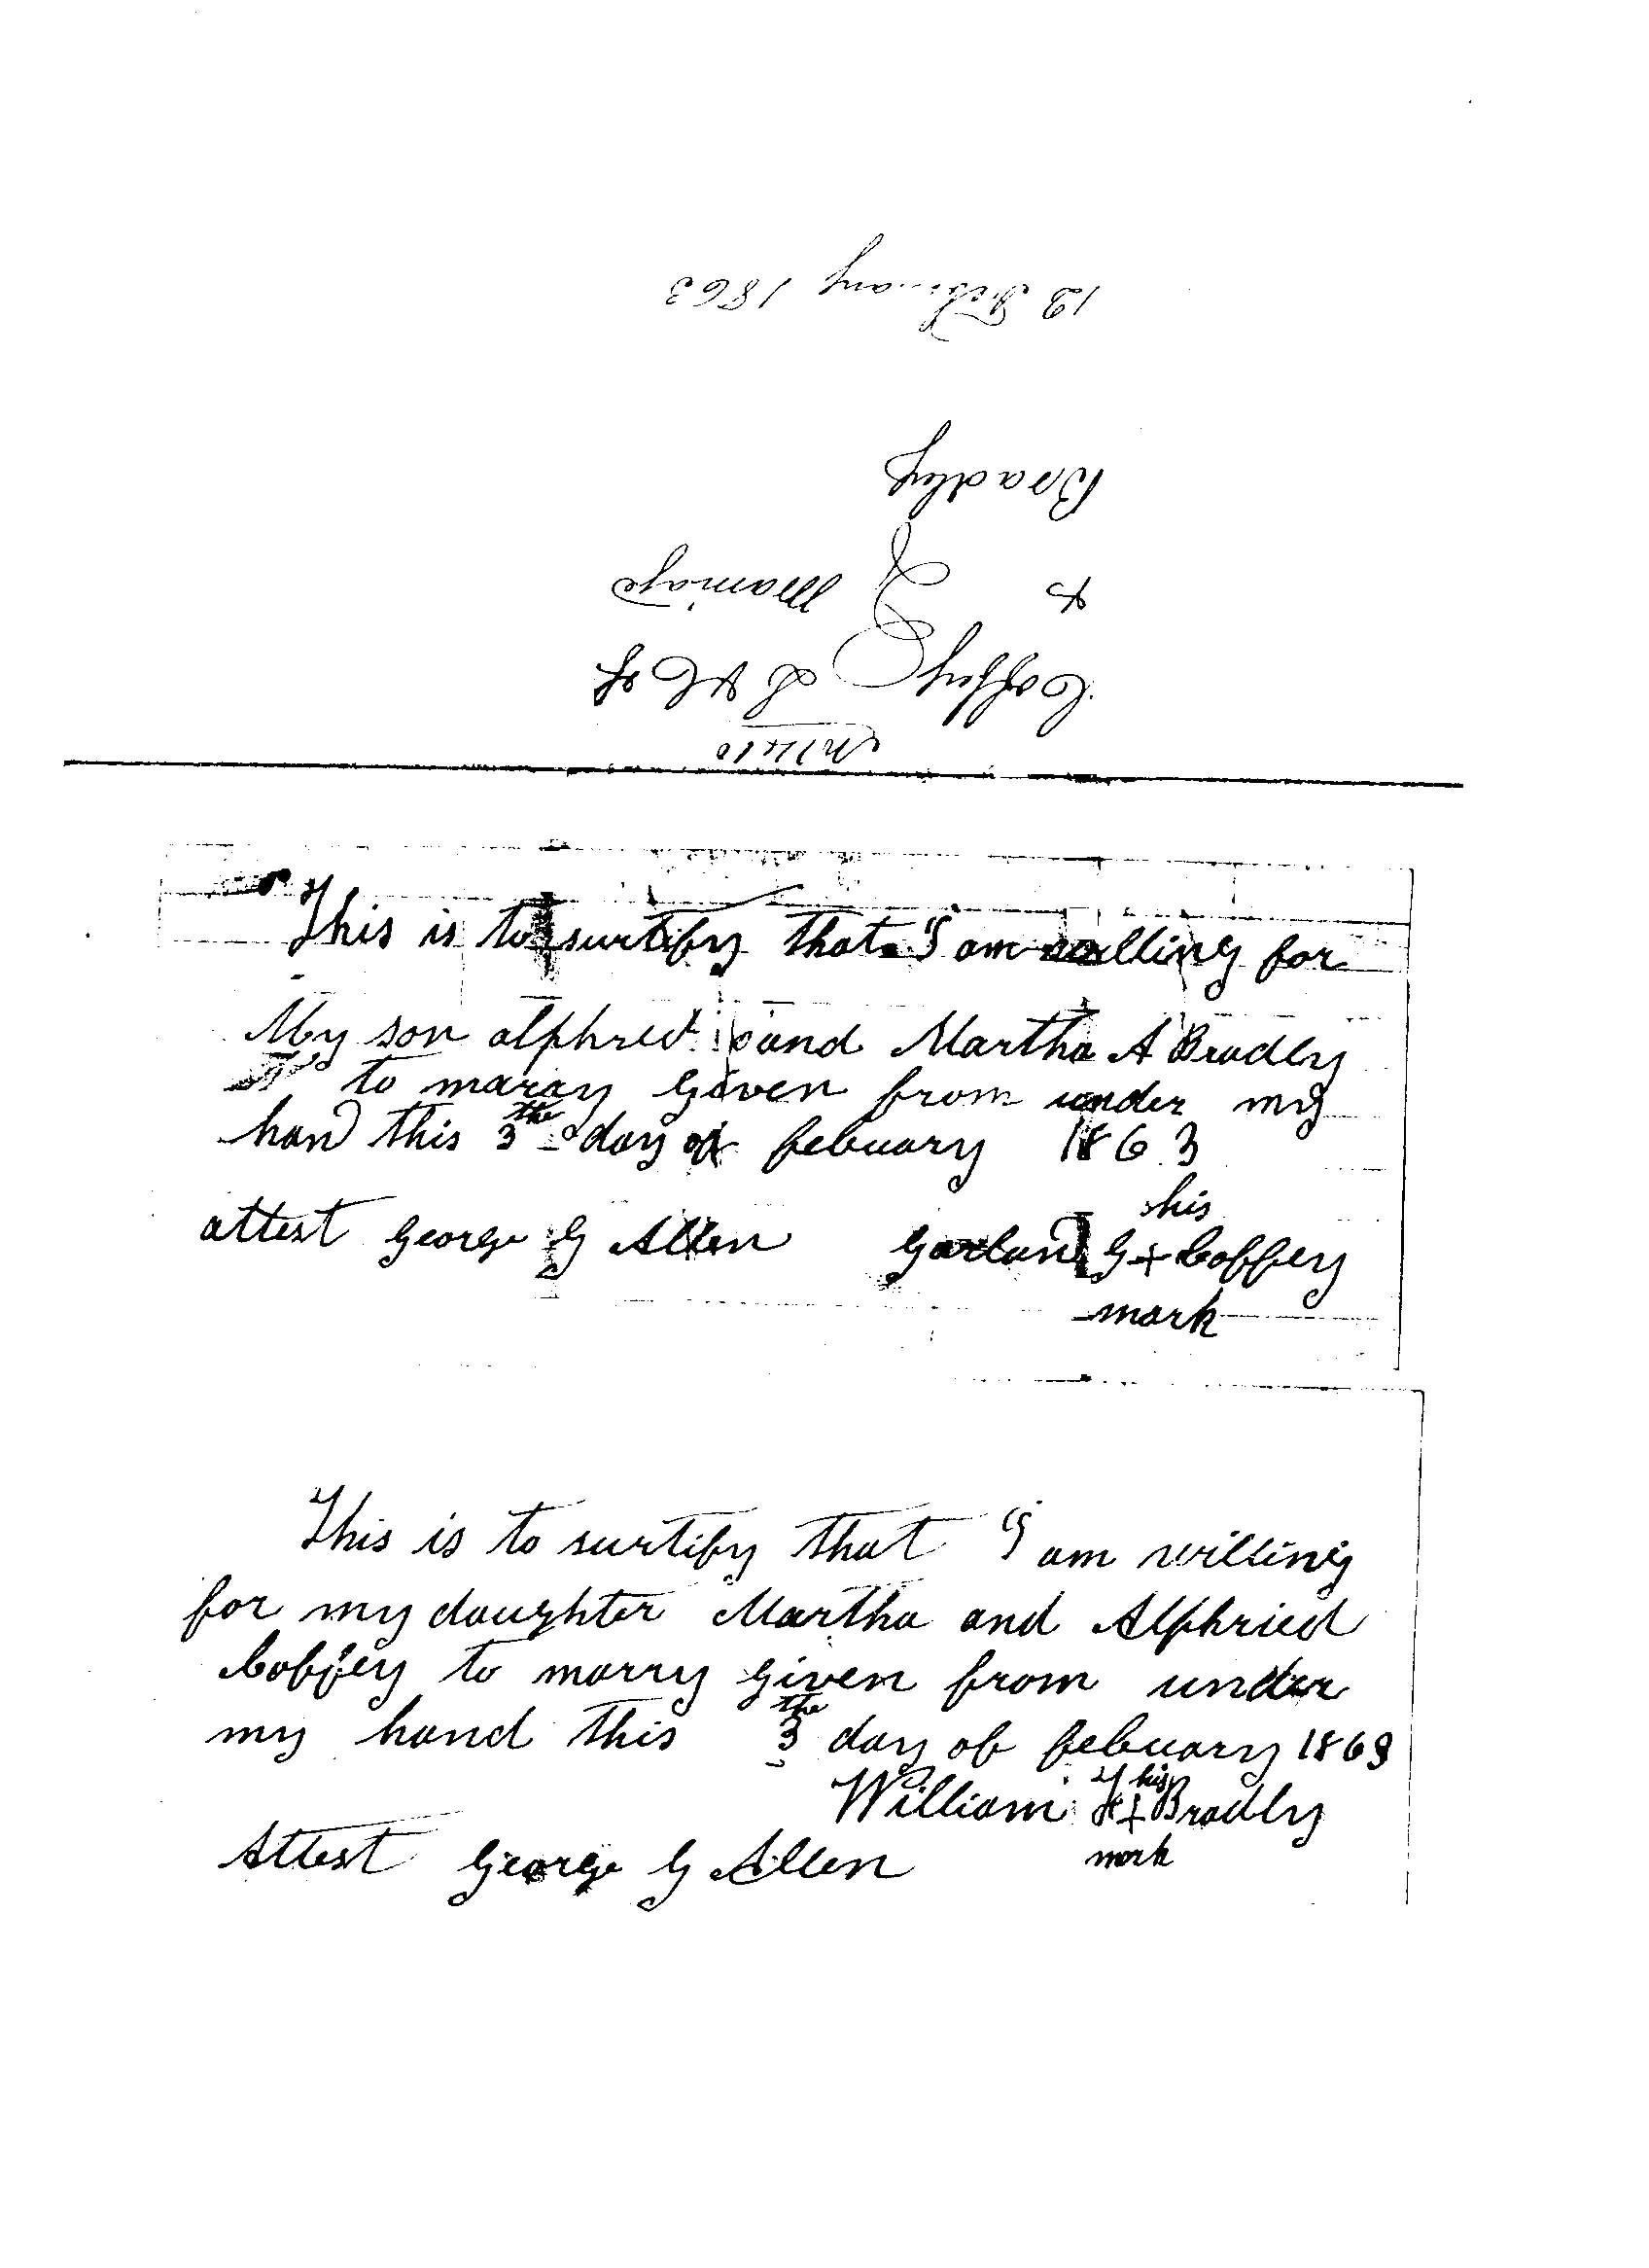 Coffey
&
Marriage
Bradley
12 February 1863
This is to surtify that I am willing for
My son alphred and Martha A Bradly
to marry Given from under my
han this 3 the day of febuary 1863
his
attest George G Allen Garland G + Coffey
mark
This is to surtify that I am willing
for my daughter Martha and Alphried
Coffey to marry given from under
my hand this 3 the day of febuary 1863
his
William + Bradly
mark
Attest George G Allen